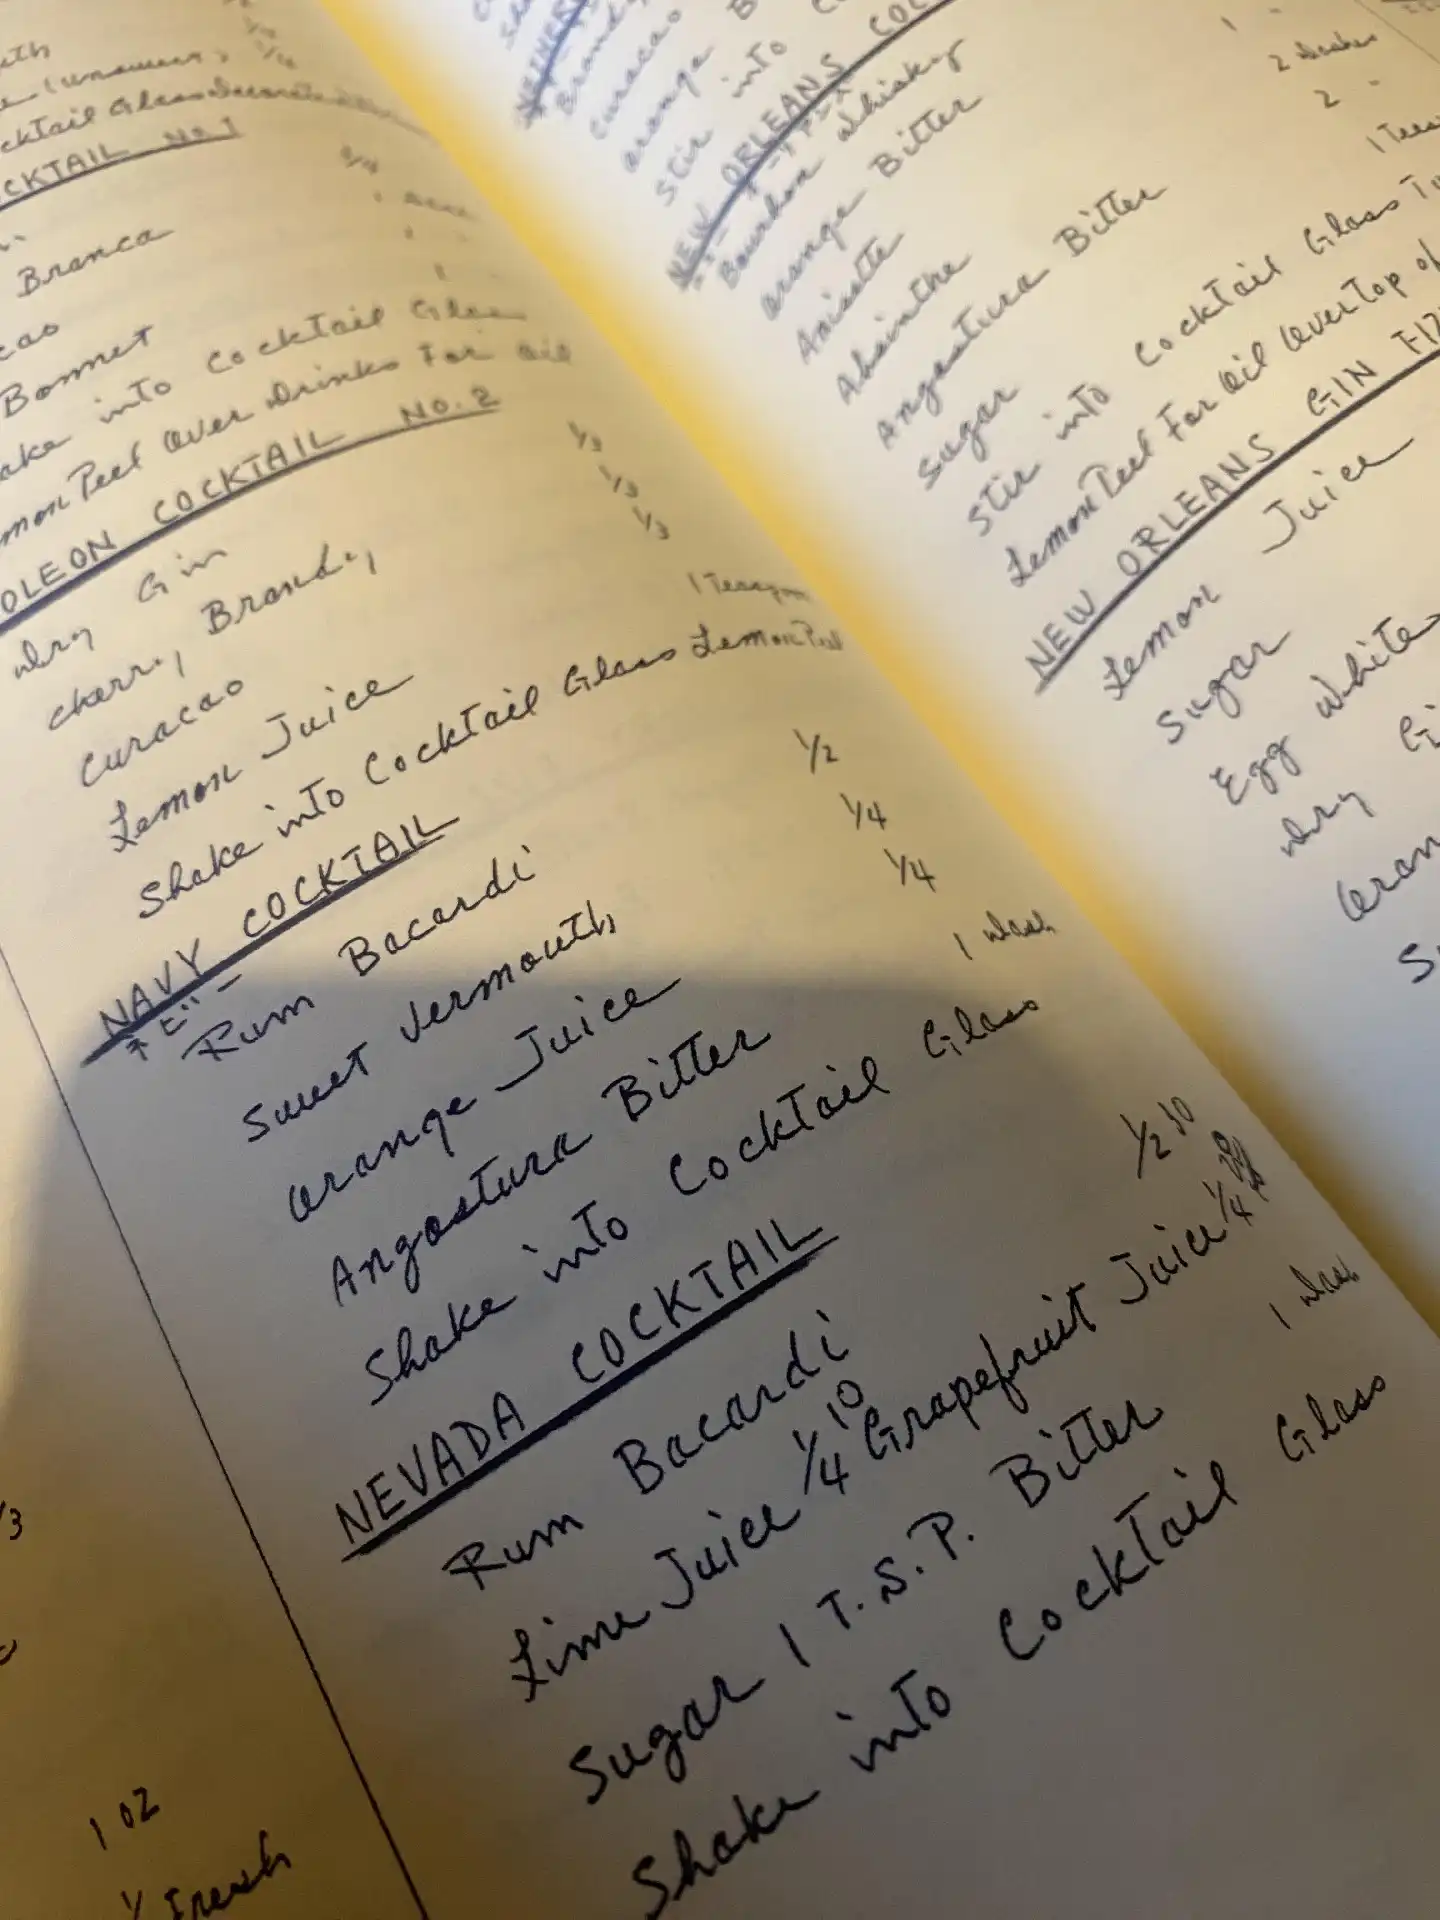 CKTAIL No.1
Branca
Bonnet
ake into Cocktail Glass
mon Peel over Drinks For oil
OLEON COCKTAIL No. 2
Dry Gin 1/3
cherry Brandy 1/3
Curacao 1/3
Lemon Juice 1 Teaspoon
Shake into Cocktail Glass Lemon Peel
NAVY COCKTAIL
ネビー
Rum Bacardi 1/2
Sweet Vermouth 1/4
orange Juice 1/4
Angostura Bitter 1 Dash
Shake into Cocktail Glass
NEVADA COCKTAIL
Rum Bacardi 1/2 30
Lime Juice 1/4 10 Grapefruit Juice 1/4
Sugar 1 T.S.P. Bitter 1 Dash
Shake into Cocktail Glass
/3
1 oz
Fresh
Brandy
Curacao
orange
Stir into
NEW ORLEANS COC
Bourbon whisky
orange Bitter 2 Dashes
Anisette 2
Absinthe
Angostura Bitter
Sugar
Stir into Cocktail Glass
Lemon Peel For oil over Top of
NEW ORLEANS GIN FIZ
Lemon Juice
Sugar
Egg White
Dry Gi
oran